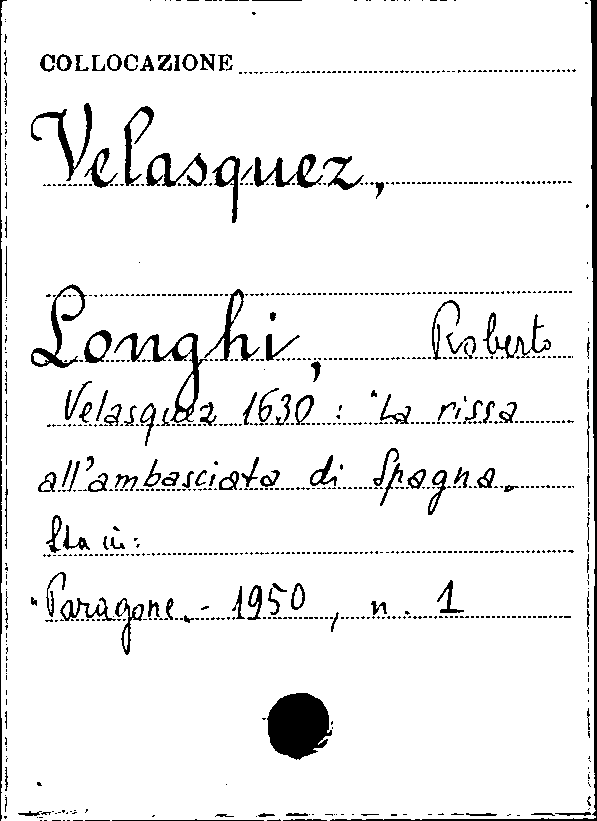 COLLOCAZIONE
Velasquez,
Longhi, Roberto
Velasquez 1630 : "La rissa
all'ambasciata di Spagna„
Sta in:
"Paragone„ - 1950, n. 1